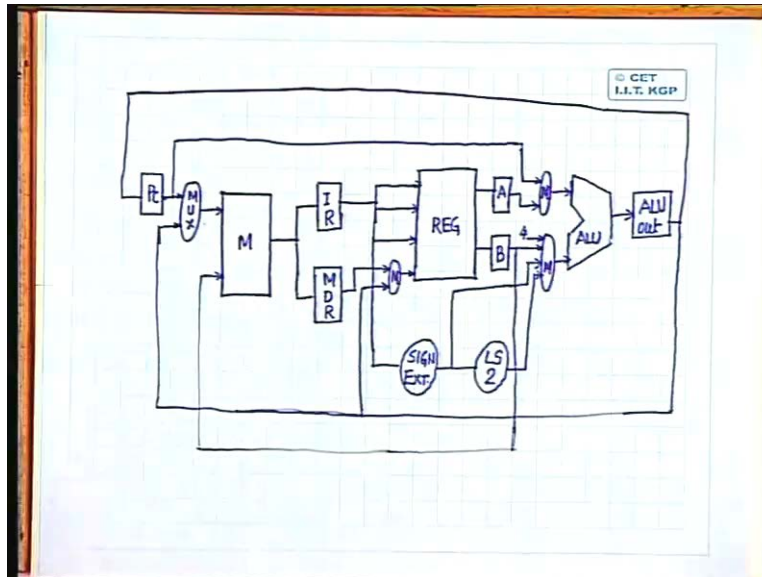 © CET
I.I.T. KGP
PC
MUX
M
IR
MDR
M
REG
A
B
4
M
M
ALU
ALU
out
SIGN
EXT.
LS
2